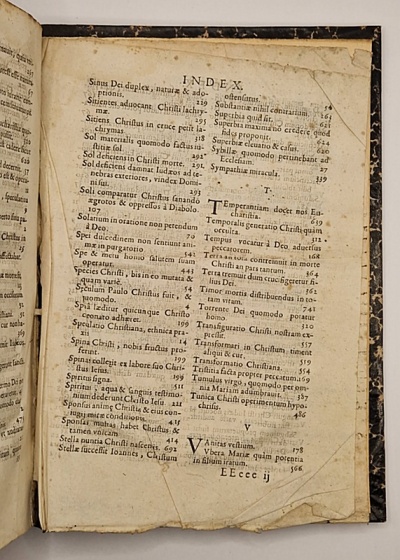 INDEX.
Sinus Dei duplex, naturæ & ado-
ptionis. 229
Sitientes aduocant Christi lachry-
mæ. 295
Sitiens Christus in cruce petit la-
chrymas 318
Sol mortalis quomodo factus iu-
stitiæ sol. 292
Sol deficiens in Christi morte. 291
Sol deficiens damnat Iudæos ad te-
nebras exteriores, vindex Domi-
ni sui. 293
Soli comparatur Christus sanando
ægrotos & oppressos à Diabolo
107
Solarium in oratione non petendum
à Deo. 70
Spei duícedinem non sentiunt ani-
mæ in purgatorio 541
Spe & metu homo salutem suam
operatur. 443
Species Christi, bis in eo mutata &
quam variè. 54
Speculum Paulo Christus fuit, &
quomodo. 4
Spiculatio Christiana, ethnica præ-
Spina Christi, nobis fructus pro-
ferunt 197
Spinas collegit ex labore suo Chri-
stus Iesus. 199
Spiritus signa. 511
Spiritus, aqua & sanguis testimo-
nium dederunt Christo Iesu 211
Sponsus animæ Christus & eius con-
iugij miræ conditiones. 415
Sponsas multas habet Christus &
tamen vnicam 414
Stella nuntia Christi nascentis. 692
Stellæ successit Ioannes, Christum
ostensurus. 54
Substantiæ nihil contrarium 163
Superbia quid sit. 621
Superbia maxima no credere quod
fides proponit. 624
Superbiæ eleuatio & casus. 620
Sybillæ quomodo pertinebant ad
Ecclesiam. 27
Sympathiæ miracula. 339
T.
Temperantiam docet nos Eu-
charistia. 639
Temporalis generatio Christi quàm
occulta. 312
Tempus vocatur à Deo aduersus
peccatorem. 168
Terra tota contremuit in morte
Christi an pars tantum. 364
Terra tremuit dum crucifigeretur fi-
lius Dei. 362
Timor mortis distribuendus in to-
tam vitam. 741
Torrente Dei quomodo potatur
homo 320
Transfiguratio Christi nostram ex-
presse. 557
Transformari in Christum, timent
aliqui & cur. 519
Transformatio Christiana. 554
Tristitia facta propter peccatum 169
Tumulus virgo, quomodo per om-
nia Mariam adumbrarit. 387
Tunica Christi operimentum hypo-
chrisis. 486
V
Vanitas vestium. 178
Vbera Mariæ quàm potentia
in filium iratum. 366
EEeee ij